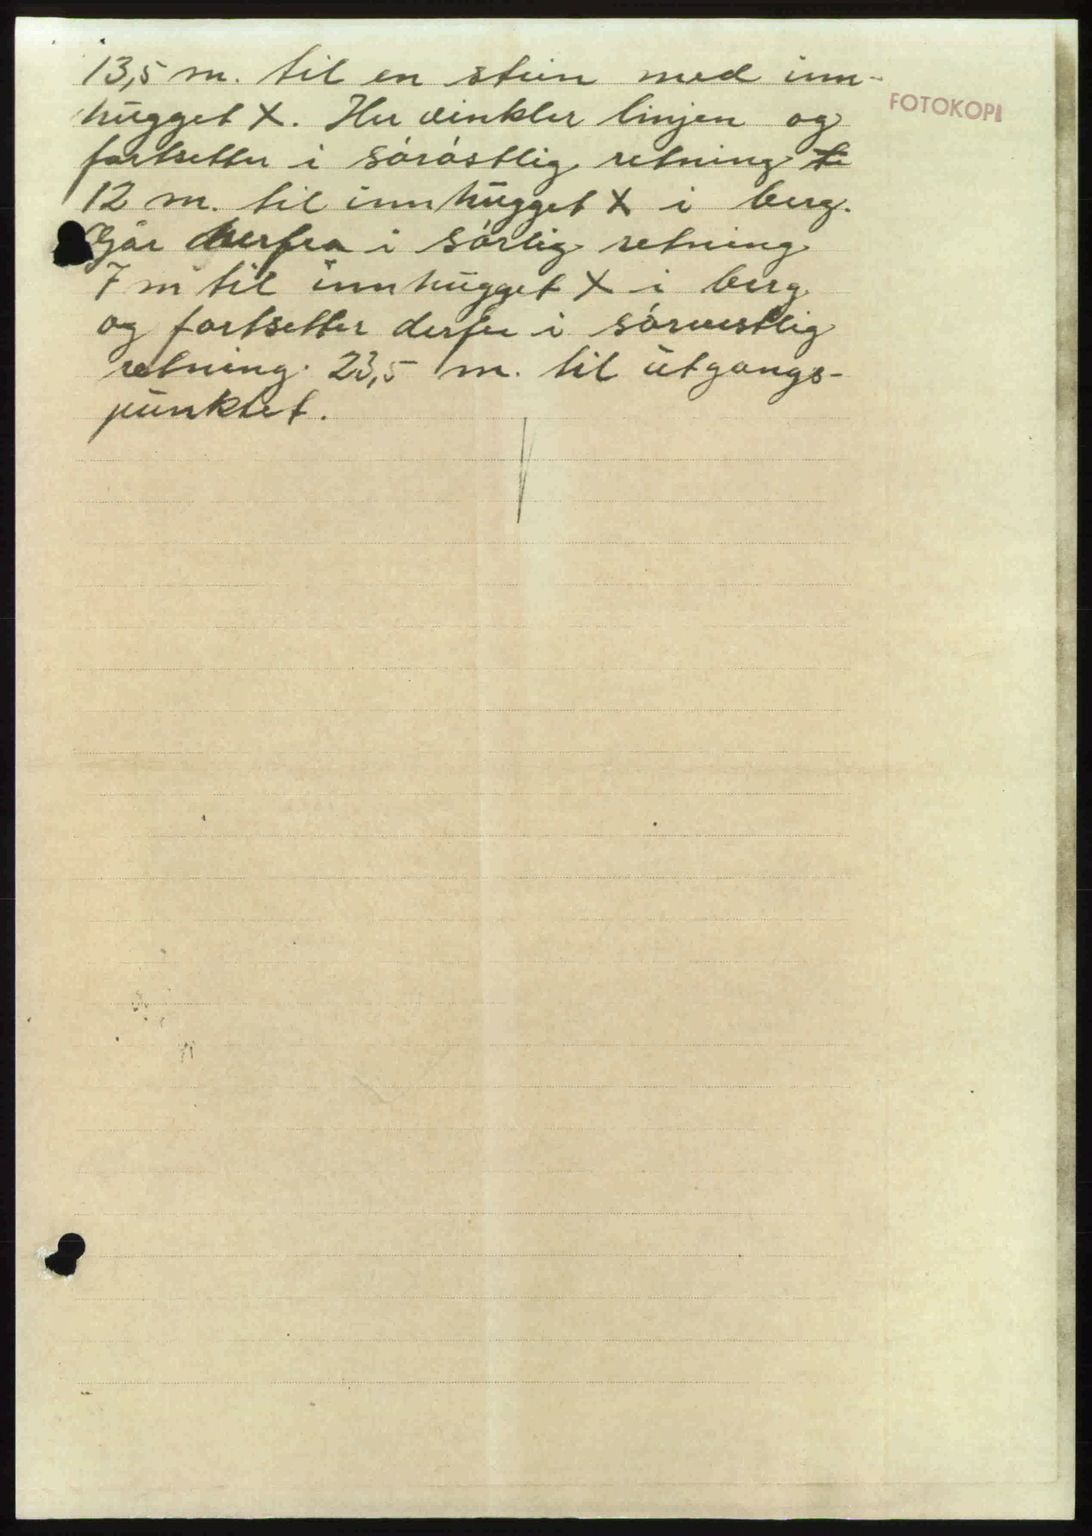 13,5 m. til en stein med inn-
hugget X. Her vinkler linjen og
FOTOKOPI
fortsetter i sóróstlig retning
12 m. til innhugget X i berg.
Går derfra i sórlig retning
7 m til innhugget X i berg
og fortsetter derfra i sórvestlig
retning 23,5 m. til utgangs-
punktet.